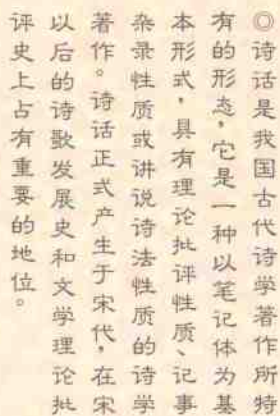 ◎诗话是我国古代诗学著作所特
有的形态，它是一种以笔记体为基
本形式，具有理论批评性质、记事
杂录性质或讲说诗法性质的诗学
著作。诗话正式产生于宋代，在宋
以后的诗歌发展史和文学理论批
评史上占有重要的地位。